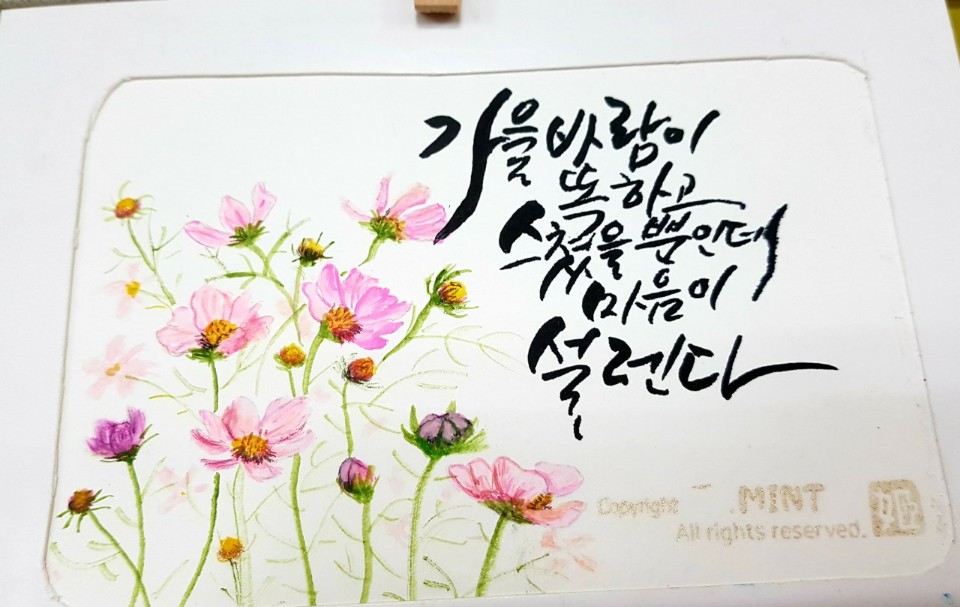 가을바람이
똑하고
스쳤을뿐인데
마음이
설렌다
Copyright MINT
All rights reserved.
姬